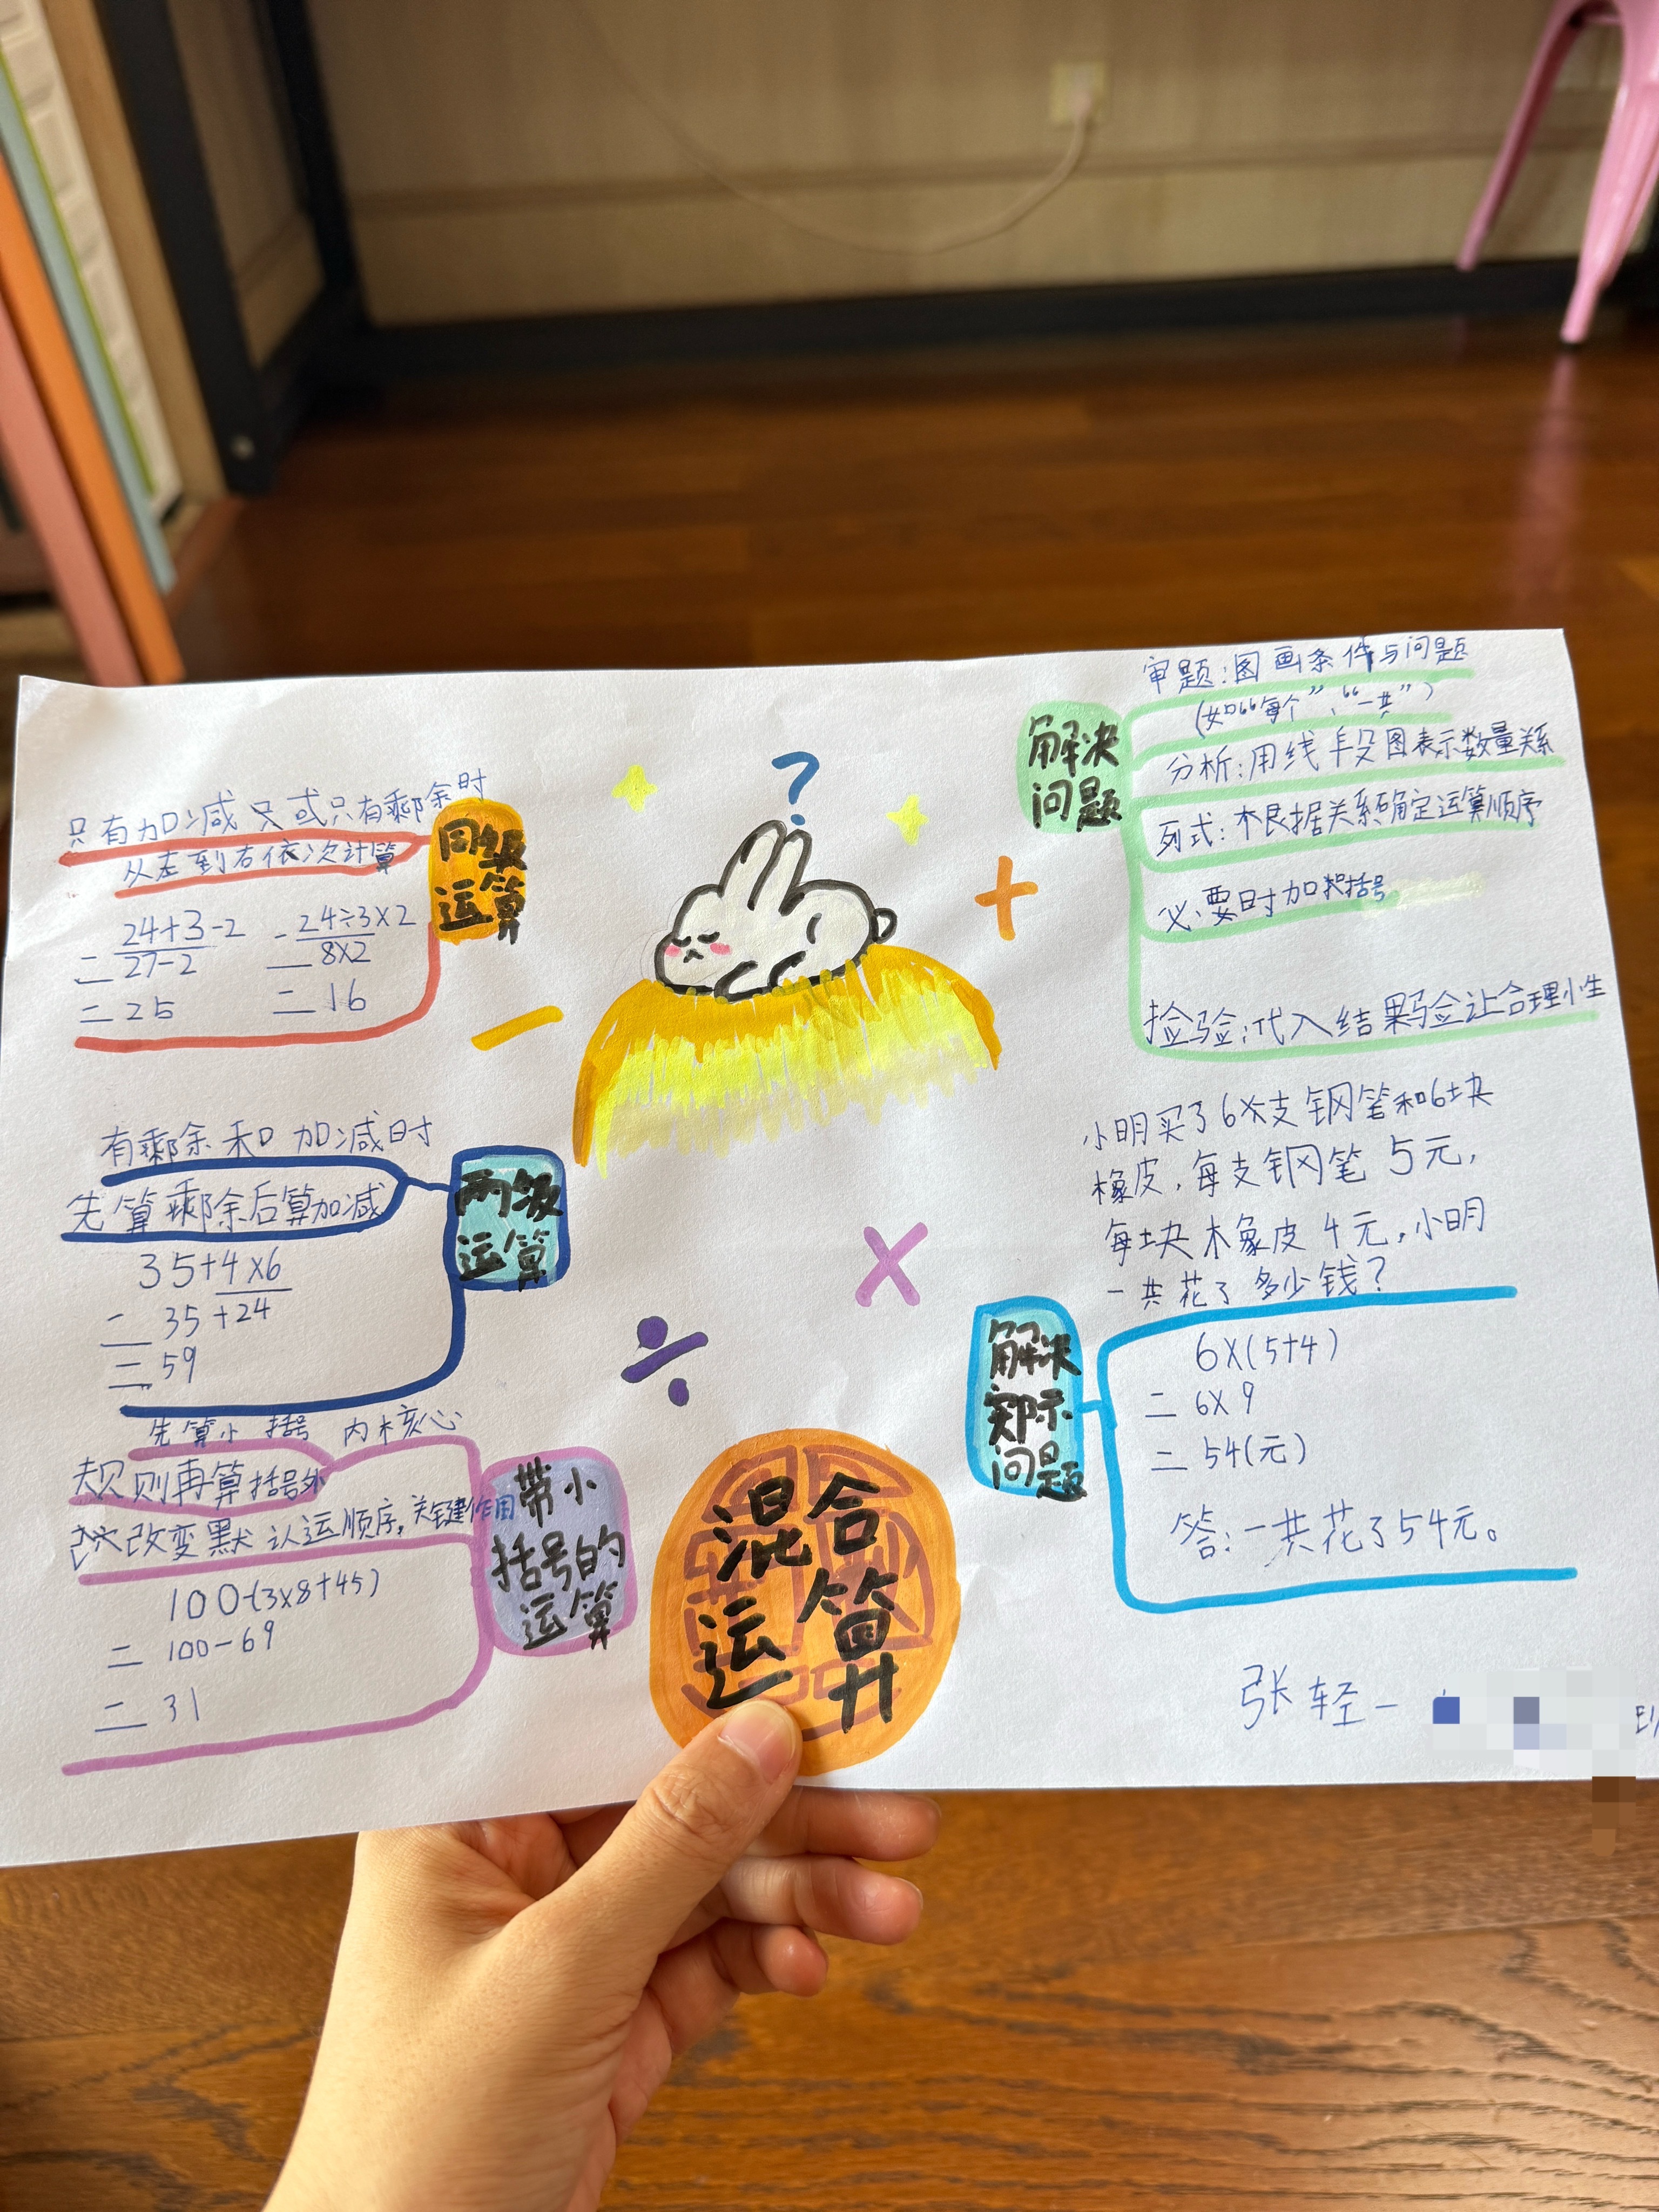 只有加减只或只有剩余时
从左到右依次计算
同级
运算
24+3-2
=27-2
=25
24÷3×2
=8×2
=16
有剩余和加减时
先算剩余后算加减
两级
运算
35+4×6
=35+24
=59
先算小括号内核心
规则再算括号外
改变默认运顺序,关键作用
带小
括号的
运算
100-(3×8+45)
=100-69
=31
?
+
-
×
÷
混合
运算
解决
问题
审题:图画条件与问题
(如“每个”、“一共”)
分析:用线段图表示数量关系
列式:根据关系确定运算顺序
必要时加括号
检验:代入结果验让合理小生
小明买了6支钢笔和6块
橡皮,每支钢笔5元,
每块橡皮4元,小明
一共花了多少钱?
解决
实际
问题
6×(5+4)
=6×9
=54(元)
答:一共花了54元。
张轻一